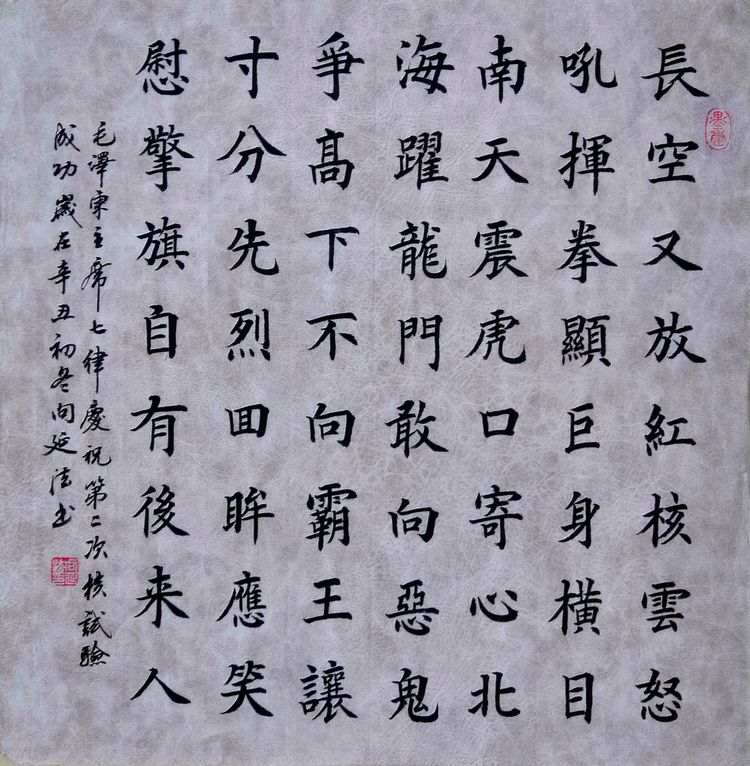 長空又放紅核雲怒
吼揮拳顯巨身橫目
南天震虎口寄心北
海躍龍門敢向惡鬼
爭高下不向霸王讓
寸分先烈回眸應笑
慰擎旗自有後来人
毛澤東主席七律慶祝第二次核試驗
成功歲在辛丑初冬向延法书